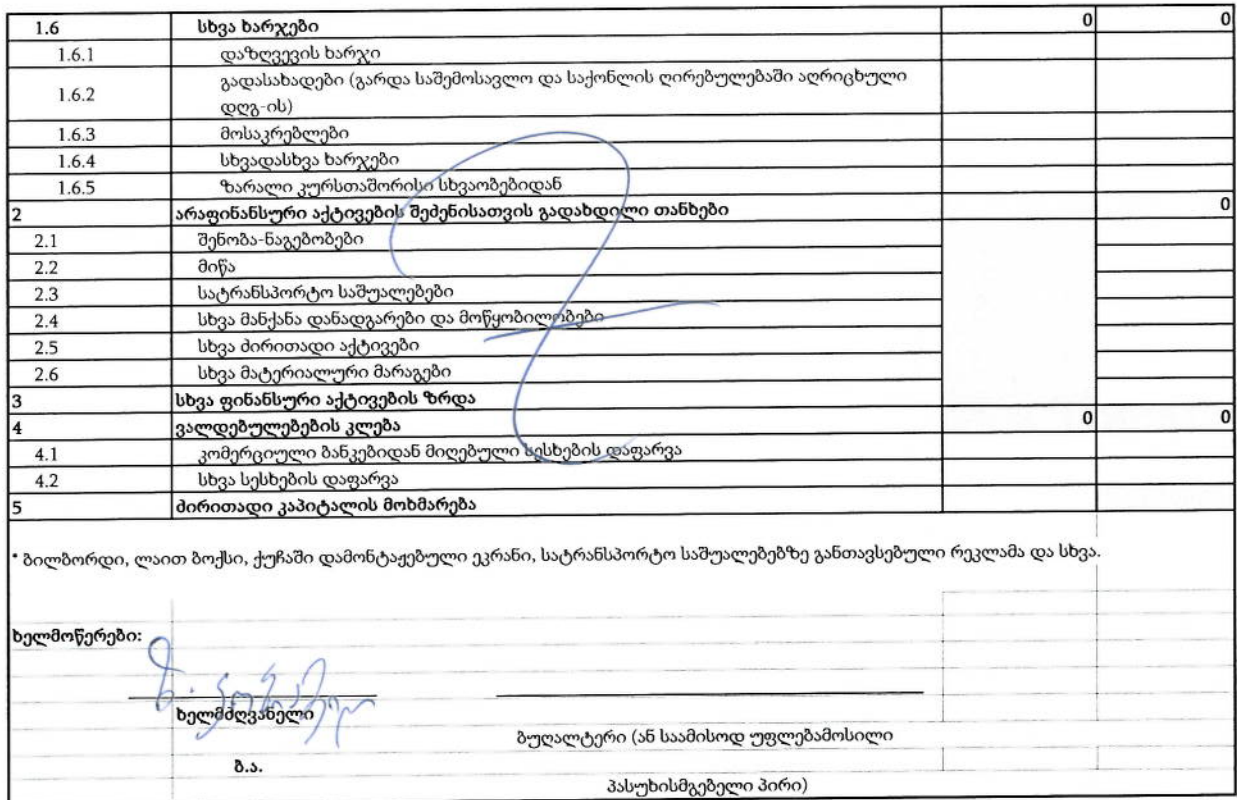 1.6 სხვა ხარჯები 0 0
1.6.1 დაზღვევის ხარჯი
1.6.2 გადასახადები (გარდა საშემოსავლო და საქონლის ღირებულებაში აღრიცხული
დღგ-ის)
1.6.3 მოსაკრებლები
1.6.4 სხვადასხვა ხარჯები
1.6.5 ზარალი კურსთაშორისი სხვაობებიდან
2 არაფინანსური აქტივების შეპენისათვის გადახდილი თანხები 0
2.1 შენობა-ნაგებობები
2.2 მიწა
2.3 სატრანსპორტო საშუალებები
2.4 სხვა მანქანა დანადგარები და მოწყობილობები
2.5 სხვა ძირითადი აქტივები
2.6 სხვა მატერიალური მარაგები
3 სხვა ფინანსური აქტივების ზრდა
4 ვალდებულებების კლება 0 0
4.1 კომერციული ბანკებიდან მიღებული სესხების დაფარვა
4.2 სხვა სესხების დაფარვა
5 ძირითადი კაპიტალის მოხმარება
* ბილბორდი, ლაით ბოქსი, ქუჩაში დამონტაჟებული ეკრანი, სატრანსპორტო საშუალებებზე განთავსებული რეკლამა და სხვა.
ხელმოწერები:
ხელმძღვანელი
ბუღალტერი (ან საამისოდ უფლებამოსილი
ბ.ა.
პასუხისმგებელი პირი)